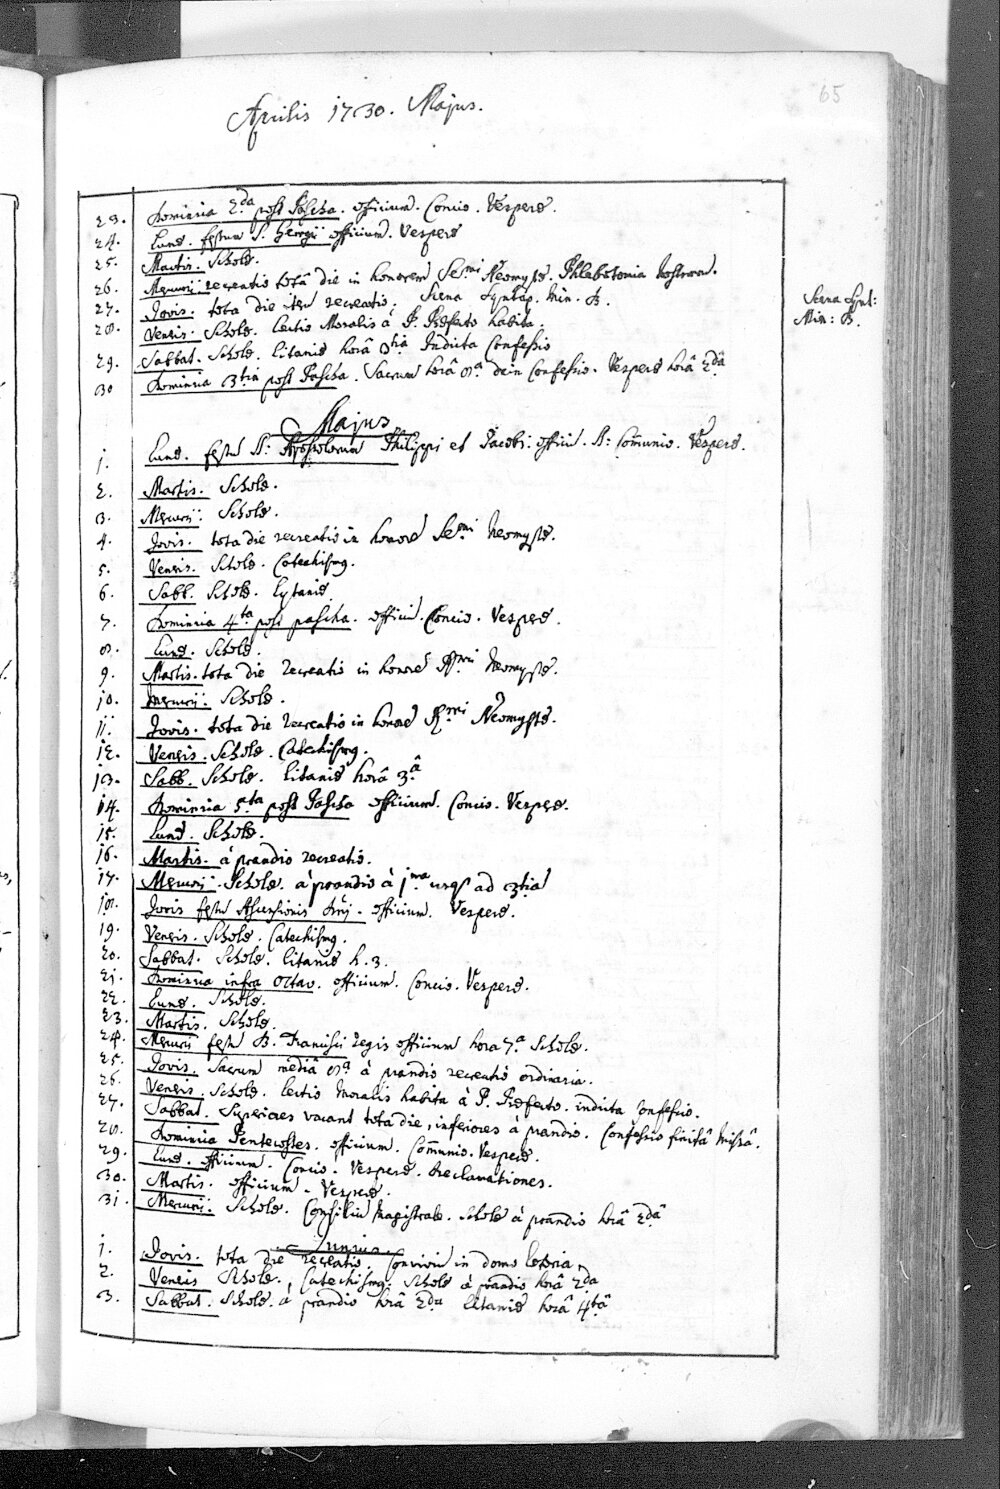 65
Aprilis 1730. Majus.
23. Dominica 2.da post Pascha. officium. Concio. Vesperæ.
24. Lunæ. festum S. Georgii officium. Vesperæ
25. Martis. Scholæ.
26. Mercurii. recreatio totâ die in honorem Se.mi Neomystæ. Phlebotomia nostrorum.
27. Jovis. tota die iteru recreatio. Scena Syntax. Min. B.
Scena Synt:
Min: B.
28. Veneris. Scholæ. lectio Moralis à P. Præfecto habita.
29. Sabbat. Scholæ. litaniæ horâ 3tiâ Indicta Confessio
30 Dominica 3tia post Pascha. Sacrum horâ 8.a dein Confessio. Vesperæ horâ 2dâ
Majus
1. Lunæ. festu SS: Apostolorum Philippi et Jacobi: offici. B: Com̄unio. Vesperæ.
2. Martis. Scholæ.
3. Mercurii. Scholæ.
4. Jovis. tota die recreatio in honore Se.mi Neomystæ.
5. Veneris. Scholæ. Catechismq.
6. Sabb. Scholæ. Lytaniæ.
7. Dominica 4.ta post pascha. offici. Concio. Vesperæ.
8. Lunæ. Scholæ.
9. Martis. tota die Recreatio in honore R.mi Neomystæ.
10. Mercurii. Scholæ.
11. Jovis. tota die Recreatio in honore R.mi Neomystæ.
12. Veneris. Scholæ. Catechismq.
13. Sabb. Scholæ. litaniæ horâ 3.â
14. Dominica 5.ta post Pascha officium. Concio. Vesperæ.
15. Lunæ. Scholæ.
16. Martis. à prandio recreatio.
17. Mercurii. Scholæ. à prandio à 1.ma usq ad 3tia
18. Jovis festu Ascensionis Dnj. officium. Vesperæ.
19. Veneris. Scholæ. Catechismq.
20. Sabbat. Scholæ. litaniæ h. 3.
21. Dominica infra Octav. officium. Concio. Vesperæ.
22. Lunæ. Scholæ.
23. Martis. Scholæ.
24. Mercurii festu B. Francisci Regis officium hora 7.a Scholæ.
25. Jovis. Sacrum mediâ 8.a à prandio recreatio ordinaria.
26. Veneris. Scholæ. lectio Moralis habita à P. Præfecto. indicta Confessio.
27. Sabbat. Superiores vacant tota die, inferiores à prandio. Confessio finitâ Missâ.
28. Dominica Pentecostes. officium. Com̄unio. Vesperæ.
29. Lunæ. officium. Concio. Vesperæ. Declamationes.
30. Martis. officium. Vesperæ.
31. Mercurii. Scholæ. Consiliu Magistrale. Scholæ à prandio horâ 2dâ
Junius.
1. Jovis. tota die recreatio. Conviviu in domo
2. Veneris Scholæ. Catechismq. Scholæ à prandio horâ 2da
3. Sabbat. Scholæ. à prandio horâ 2da Litaniæ horâ 4tâ